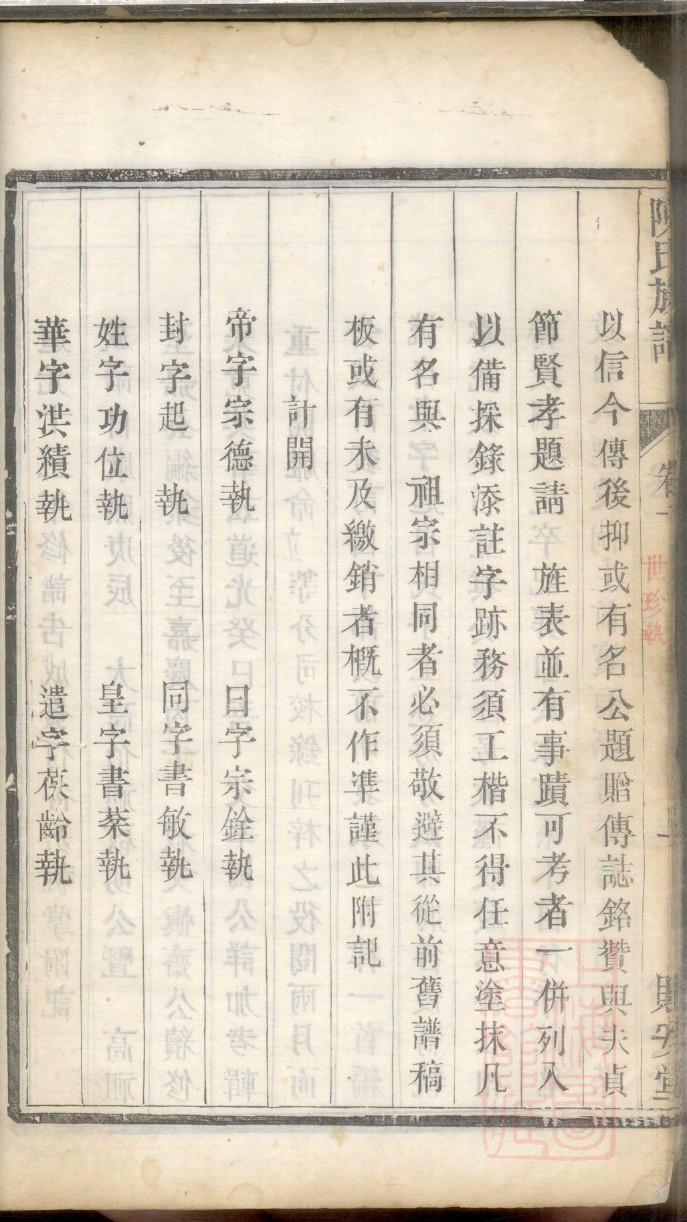 陳氏族譜
卷一
以信今傳後抑或有名公題贈傳誌銘贊與夫貞
節賢孝題請　旌表並有事蹟可考者一併列入
以備採錄添註字跡務須工楷不得任意塗抹凡
有名與　祖宗相同者必須敬避其從前舊譜稿
板或有未及繳銷者概不作準謹此附記
計開
帝字宗德執　曰字宗銓執
封字起　執　同字書敏執
姓字功位執　皇字書棻執
華字洪績執　遣字葆齡執